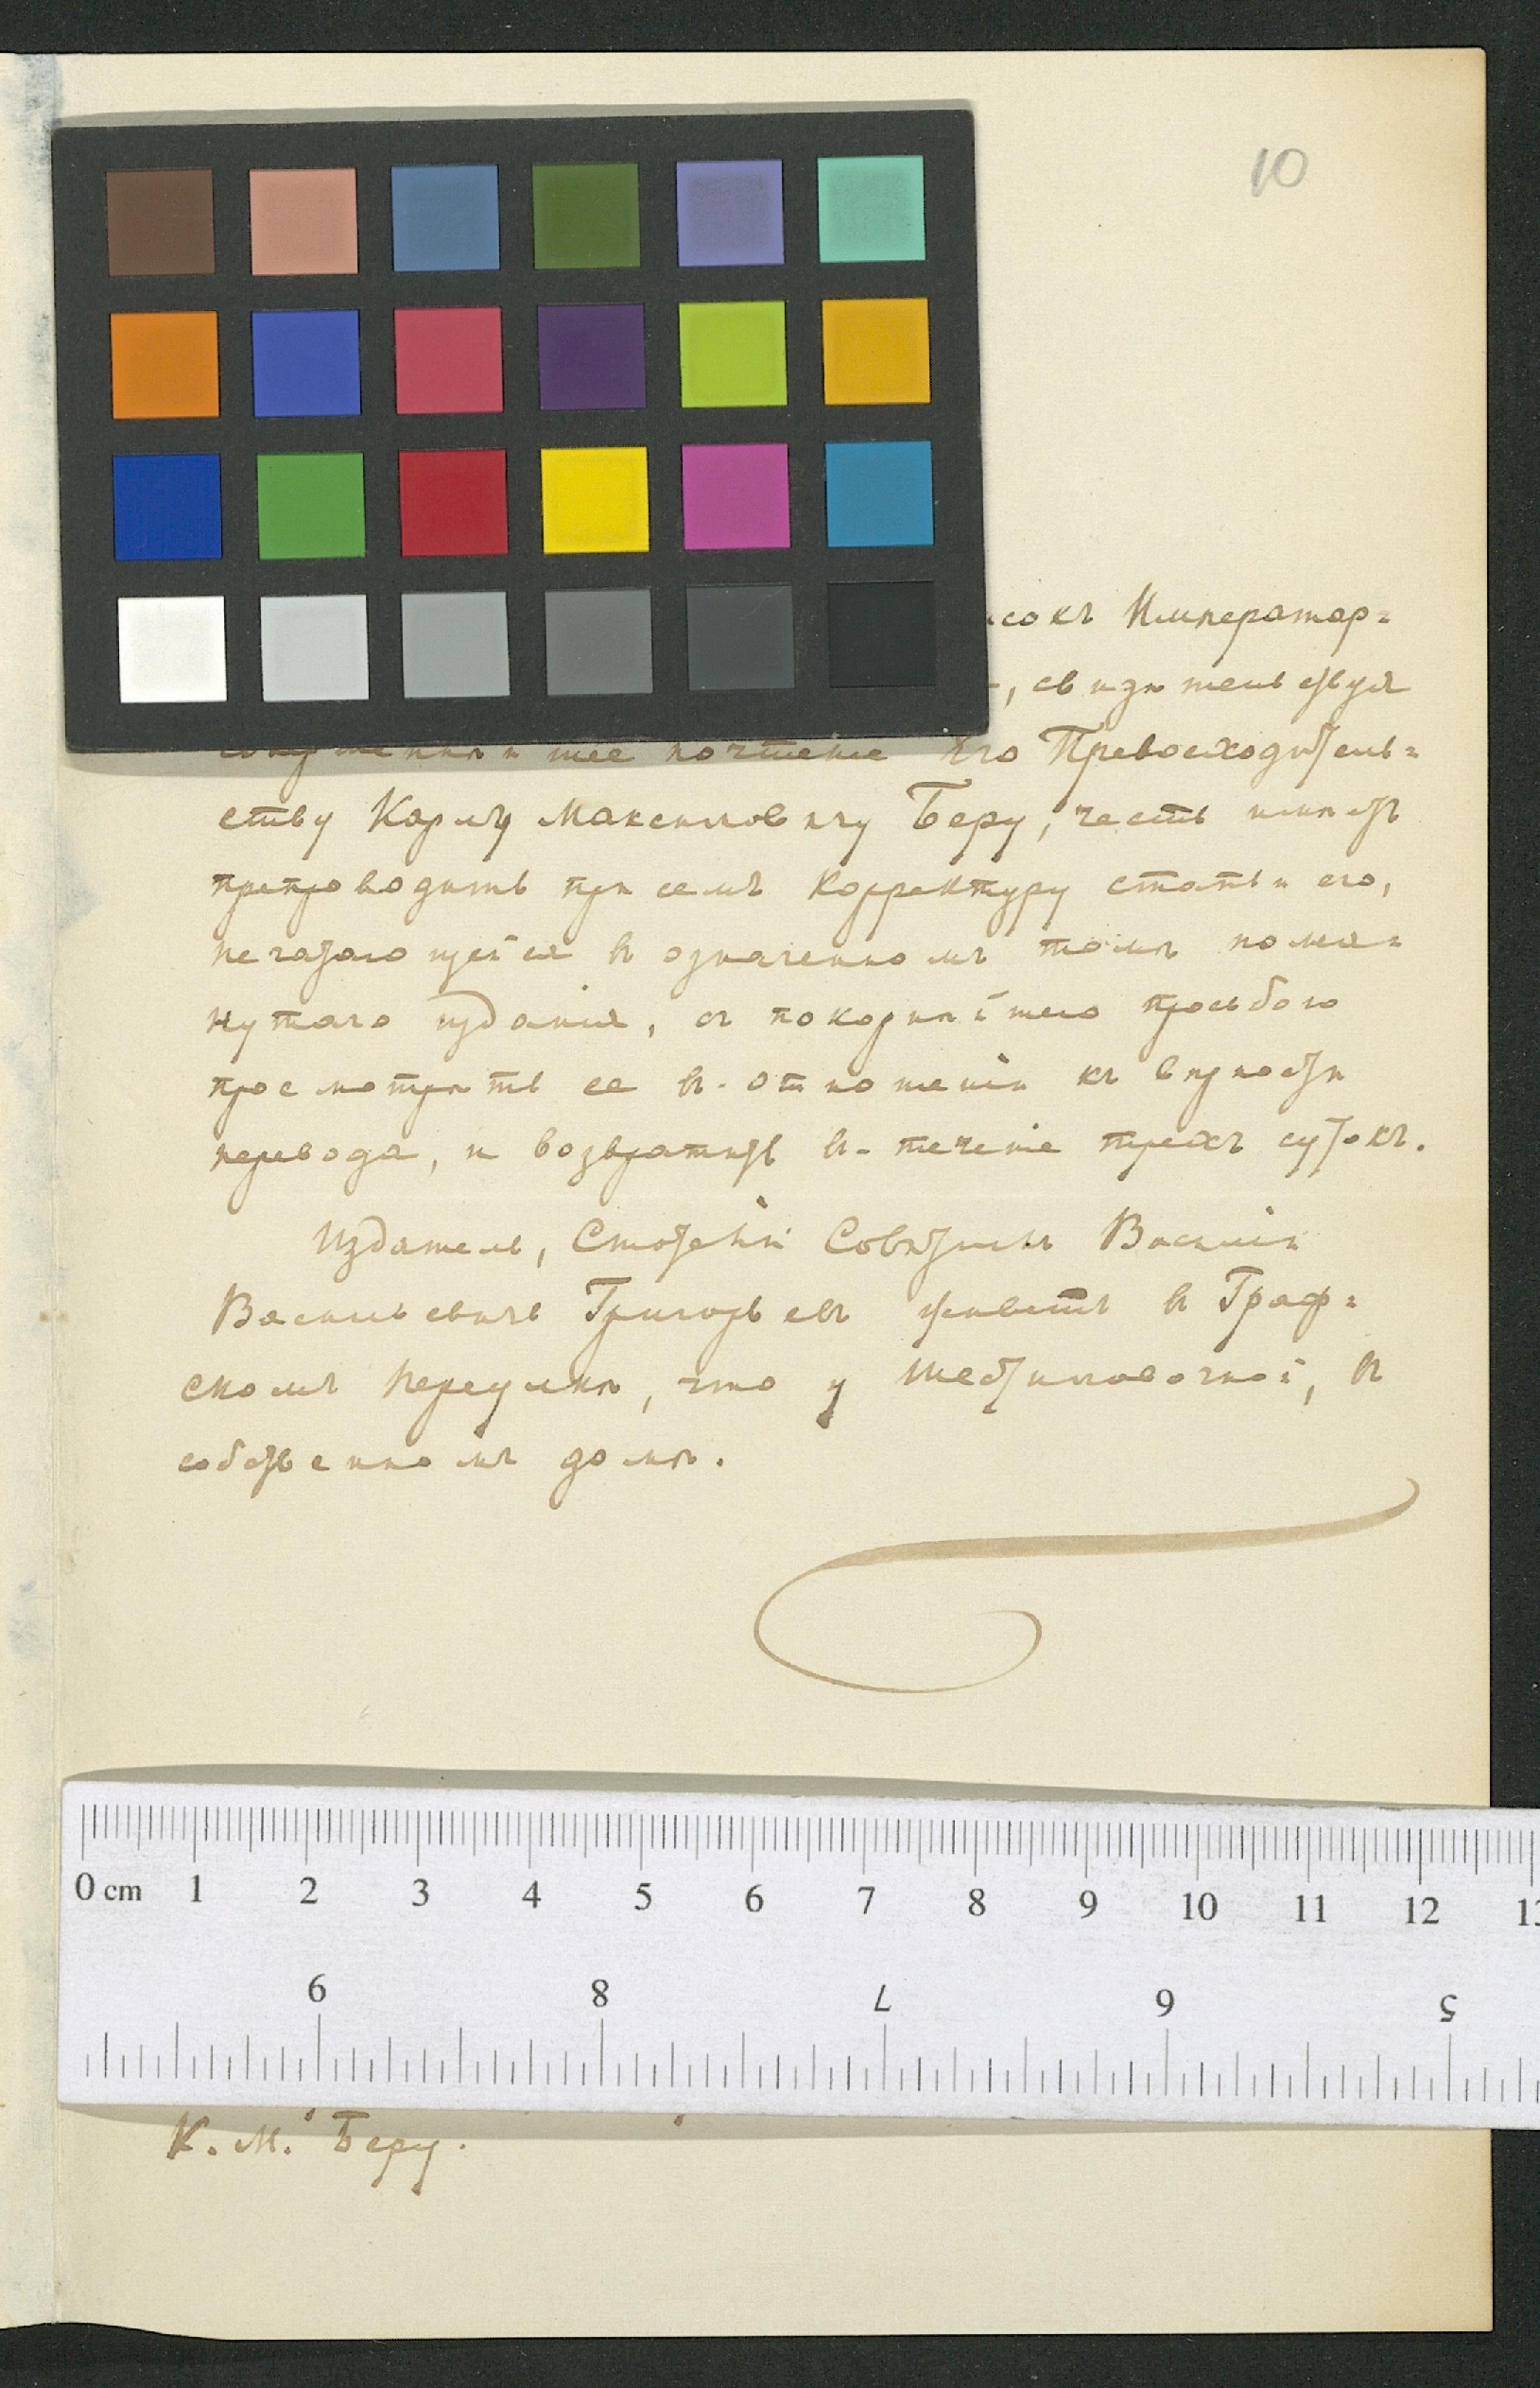 10
сокъ Император=
, свидѣтельствуя
почтеніе Его Превосходитель=
ству Карлу Максимовичу Беру, честь имѣетъ
препроводить при семъ корректуру статьи его,
печатающейся въ означенномъ томѣ помя=
нутаго изданія, съ покорнѣйшею просьбою
просмотрѣть ее въ отношеніи къ вѣрности
перевода, и возвратить въ теченіе трехъ сутокъ.
Издатель, Статскій Совѣтникъ Василій
Васильевичъ Григорьевъ живетъ въ Граф=
скомъ переулкѣ, что у Шестилавочной, въ
собственномъ домѣ.
0 cm 1 2 3 4 5 6 7 8 9 10 11 12 13
9 8 7 6 5
К. М. Беру.